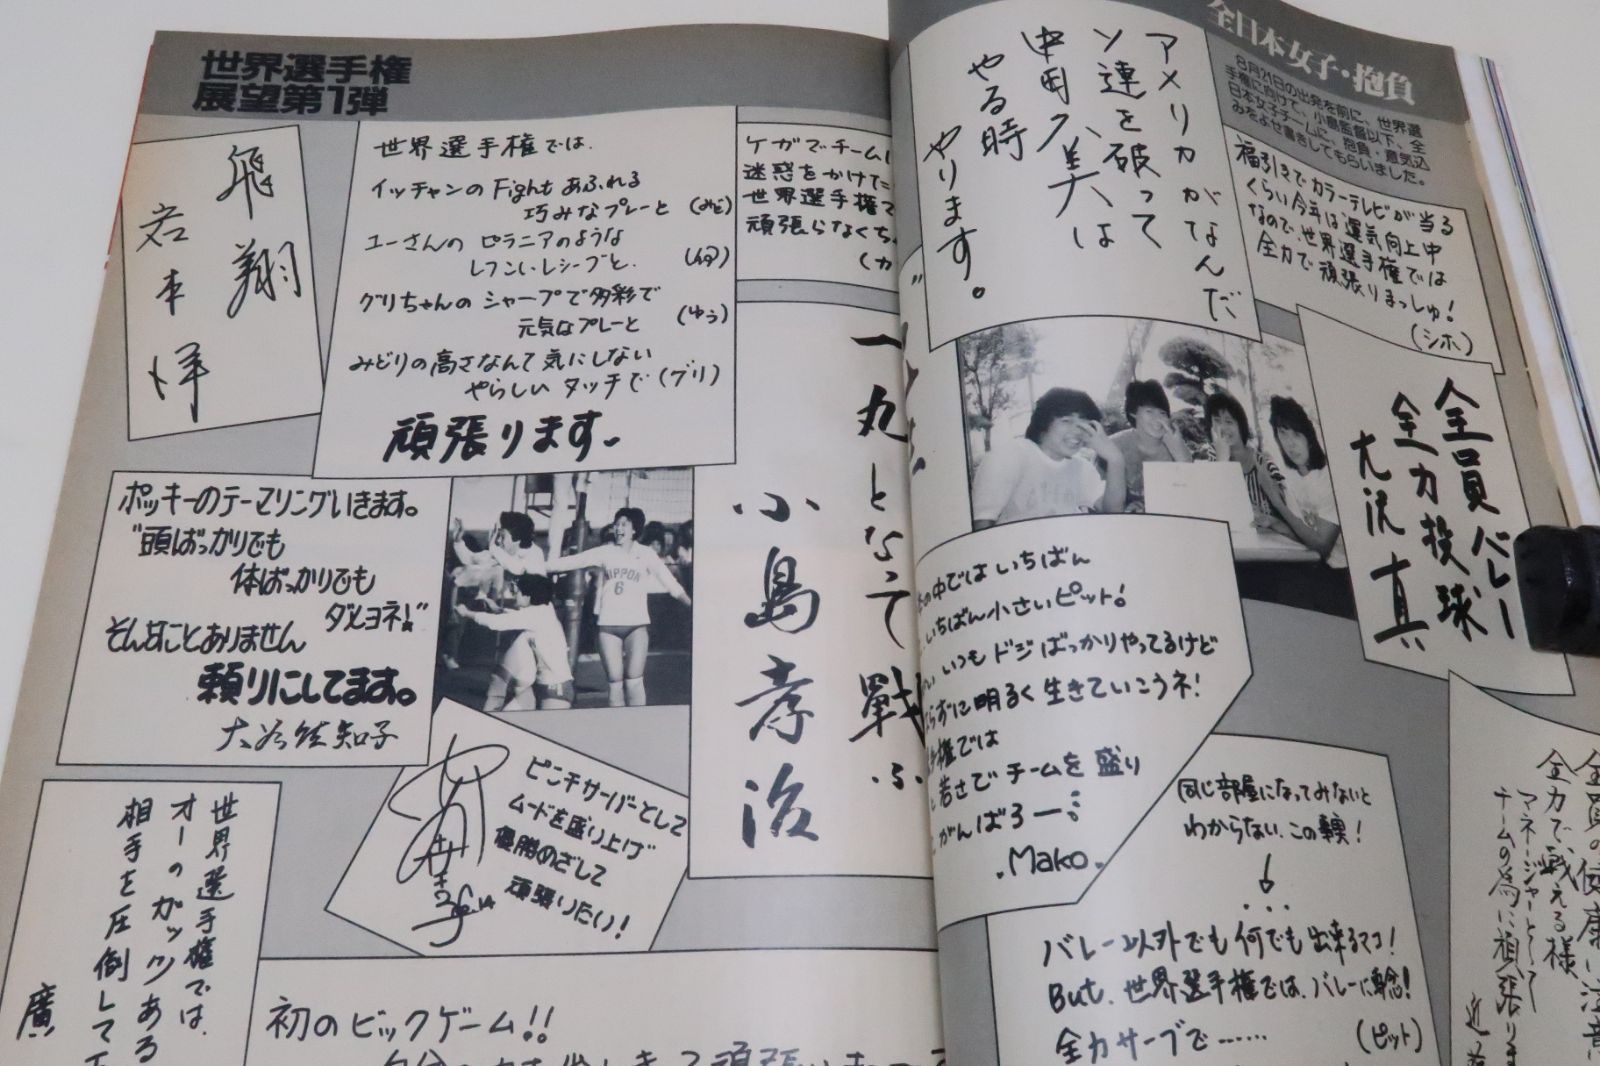 世界選手権
展望第1弾
飛翔
岩本洋
世界選手権では、
イッチャンのFightあふれる
巧みなプレーと (みど)
ユーさんの ピラニアのような
しつこいレシーブと、
グリちゃんの シャープで多彩で
元気なプレーと (ゆう)
みどりの高さなんて気にしない
やらしい タッチで (グリ)
頑張ります。
ケガでチームに
迷惑をかけた
世界選手権で
頑張らなくち
(カ
ポッキーのテーマソングいきます。
“頭ばっかりでも
体ばっかりでも
ダメヨネ!”
そんなことありません
頼りにしてます。
一丸となって戦
ふ
小島孝治
NIPPON
6
ピンチサーバーとして
ムードを盛り上げ
優勝めざして
頑張りたい!
世界選手権では、
オーのガッツある
相手を圧倒して
廣
初のビックゲーム!!
全日本女子・抱負
8月21日の出発を前に、世界選
手権に向けて、小島監督以下、全
日本女子チームに、抱負・意気込
みをよせ書きしてもらいました。
アメリカがなんだ
ソ連を破って
中田久美は
やる時
やります。
福引きでカラーテレビが当る
くらい今年は運気向上中
なので、世界選手権では
全力で頑張りまっしゅ!
(シホ)
全員バレー
全力投球
大沢真
の中ではいちばん
いちばん小さいピット!
いつもドジばっかりやってるけど
らずに明るく生きていこうネ!
手権では
若さでチームを盛り
がんばろー…
.Mako.
同じ部屋になってみないと
わからない、この癖!
バレー以外でも何でも出来るマコ!
But、世界選手権では、バレーに専念!
全力サーブで…… (ピット)
全員の健康に注意
全力で、戦える様
マネージャーとして
チームの為に頑張りま
近